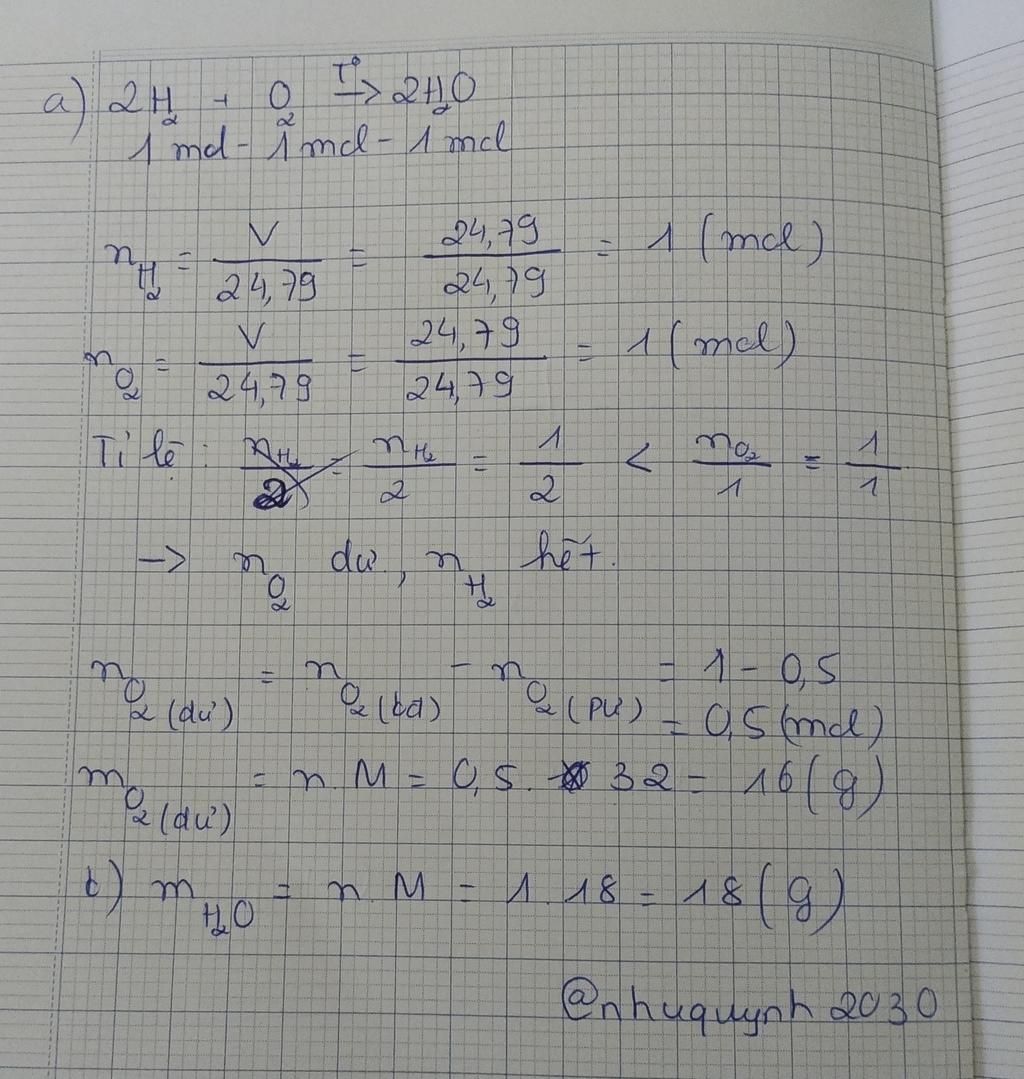 a) 2H₂ + O₂ T°→ 2H₂O
1 mol - 1 mol - 1 mol
n H₂ = V/24,79 = 24,79/24,79 = 1 (mol)
n O₂ = V/24,79 = 24,79/24,79 = 1 (mol)
Tỉ lệ : n H₂/2 = 1/2 < n O₂/1 = 1/1
-> n O₂ dư, n H₂ hết.
n O₂ (dư) = n O₂ (bđ) - n O₂ (pư) = 1 - 0,5
= 0,5 (mol)
m O₂ (dư) = n. M = 0,5. 32 = 16 (g)
b) m H₂O = n. M = 1. 18 = 18 (g)
@nhuquynh 2030